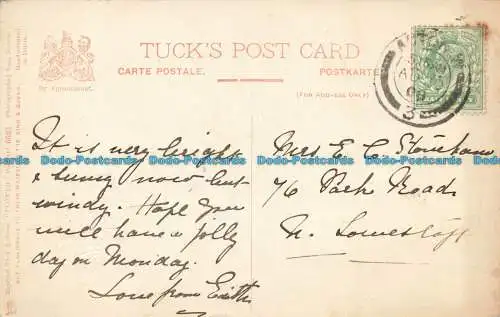 TUCK'S POST CARD
CARTE POSTALE.
POSTKARTE
By Appointment.
(FOR ADDRESS ONLY)
It is very bright
& sunny now but
windy. Hope you
will have a jolly
day on Monday.
Love from Edith
Mrs E C
76 Park Road
N. Lowestoft
Dodo-Postcards Dodo-Postcards Dodo-Postcards Dodo-Postcards